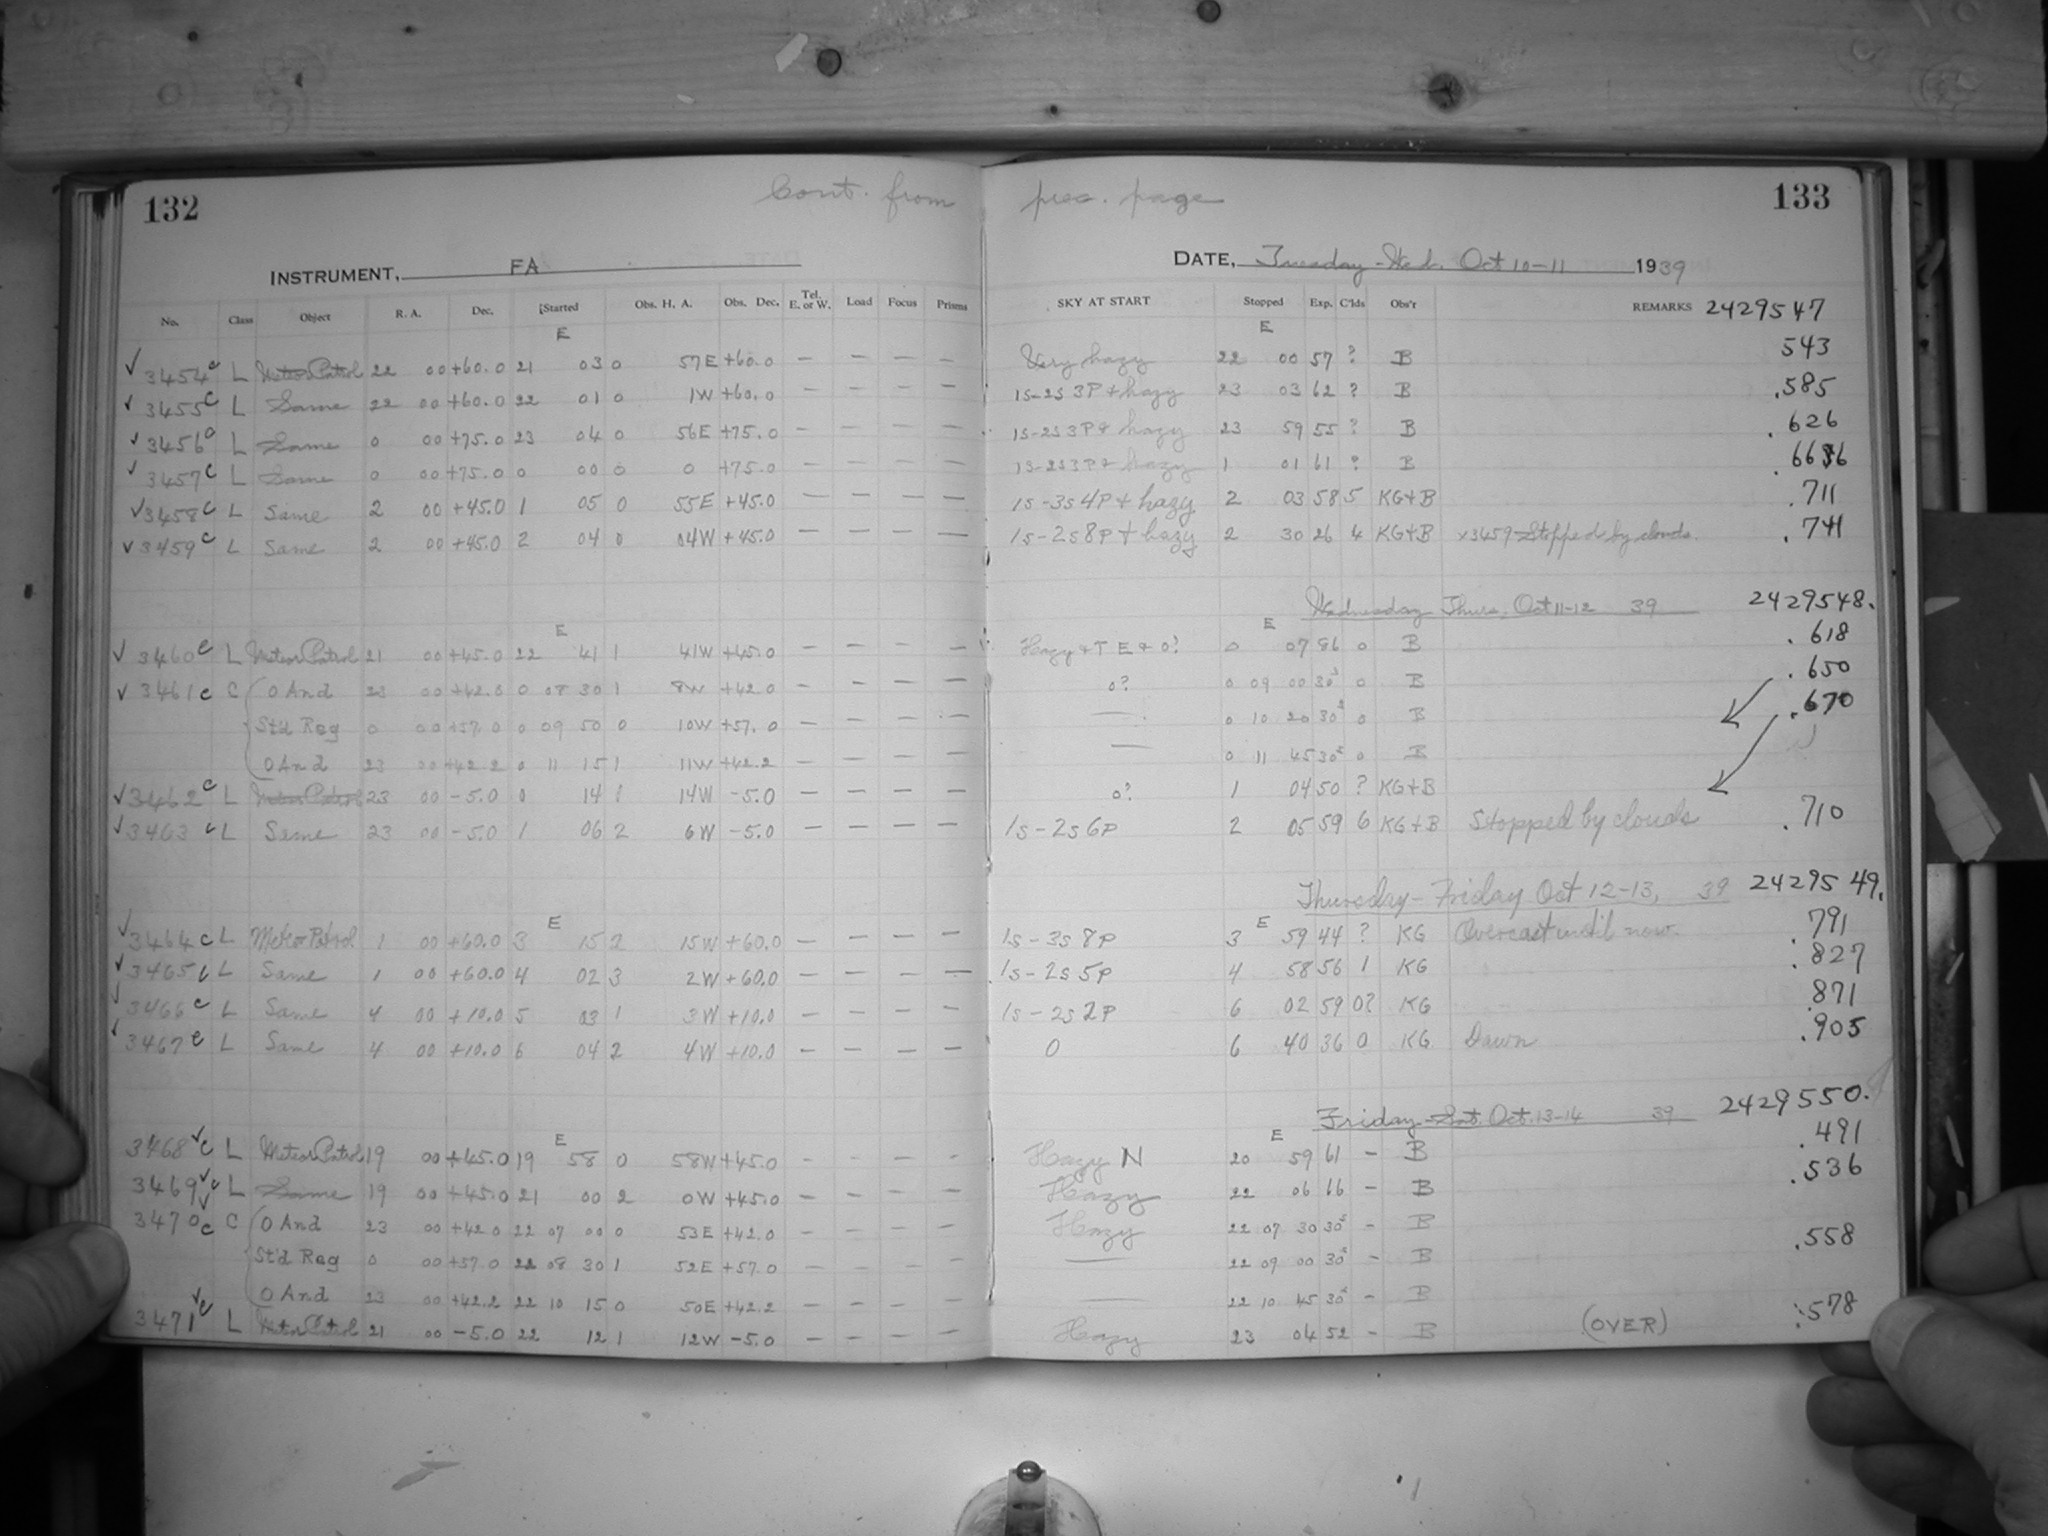 132 Cont. from prec. page 133
INSTRUMENT, FA DATE, Tuesday - Wed. Oct 10-11 1939
No. Class Object R. A. Dec. Started Obs. H. A. Obs. Dec. Tel. E. or W. Load Focus Prisms SKY AT START Stopped Exp. C'lds Obs'r REMARKS 2429547
E E
✓ 3454c L Meteor Patrol 22 00 +60.0 21 03 0 57E +60.0 — — — — Very hazy 22 00 57 ? B 543
✓ 3455c L Same 22 00 +60.0 22 01 0 1W +60.0 — — — — 1s-2s 3P + hazy 23 03 62 ? B .585
✓ 3456c L Same 0 00 +75.0 23 04 0 56E +75.0 — — — — 1s-2s 3P + hazy 23 59 55 ? B .626
✓ 3457c L Same 0 00 +75.0 0 00 0 0 +75.0 — — — — 1s-2s 3P + hazy 1 01 61 ? B
✓ 3458c L Same 2 00 +45.0 1 05 0 55E +45.0 — — — — 1s-3s 4P + hazy 2 03 58 5 KG+B .711
✓ 3459c L Same 2 00 +45.0 2 04 0 04W +45.0 — — — — 1s-2s 8P + hazy 2 30 26 4 KG+B x3459 Stopped by clouds. .741
Wednesday Thurs. Oct 11-12 39 2429548.
E E
✓ 3460c L Meteor Patrol 21 00 +45.0 22 41 1 41W +45.0 — — — — Hazy + T E + 0? 0 07 86 0 B .618
✓ 3461c C O And 23 00 +42.0 0 08 30 1 8W +42.0 — — — — 0? 0 09 00 30s 0 B .650
St'd Reg 0 00 +57.0 0 09 50 0 10W +57.0 — — — — — 0 10 20 30s 0 B .670
O And 23 00 +42.2 0 11 15 1 11W +42.2 — — — — — 0 11 45 30s 0 B
✓ 3462c L Meteor Patrol 23 00 -5.0 0 14 1 14W -5.0 — — — — 0? 1 04 50 ? KG+B
✓ 3463c L Same 23 00 -5.0 1 06 2 6W -5.0 — — — — 1s-2s 6P 2 05 59 6 KG+B Stopped by clouds .710
Thursday - Friday Oct 12-13, 39 2429549.
E E
✓ 3464c L Meteor Patrol 1 00 +60.0 3 15 2 15W +60.0 — — — — 1s-3s 8P 3 59 44 ? KG Overcast until now. .791
✓ 3465c L Same 1 00 +60.0 4 02 3 2W +60.0 — — — — 1s-2s 5P 4 58 56 1 KG .827
✓ 3466c L Same 4 00 +10.0 5 03 1 3W +10.0 — — — — 1s-2s 2P 6 02 59 0? KG .871
✓ 3467c L Same 4 00 +10.0 6 04 2 4W +10.0 — — — — 0 6 40 36 0 KG Dawn .905
Friday - Sat. Oct. 13-14 39 2429550.
E E
3468✓c L Meteor Patrol 19 00 +45.0 19 58 0 58W +45.0 - - - - Hazy N 20 59 61 - B .491
3469✓c L Same 19 00 +45.0 21 00 2 0W +45.0 — — — — Hazy 22 06 66 - B .536
3470✓c C O And 23 00 +42.0 22 07 00 0 53E +42.0 — — — — Hazy 22 07 30 30s - B
St'd Reg 0 00 +57.0 22 08 30 1 52E +57.0 — — — — — 22 09 00 30s - B .558
O And 23 00 +42.2 22 10 15 0 50E +42.2 — — — — — 22 10 45 30s - B
3471✓c L Meteor Patrol 21 00 -5.0 22 12 1 12W -5.0 — — — — Hazy 23 04 52 - B (OVER) .578